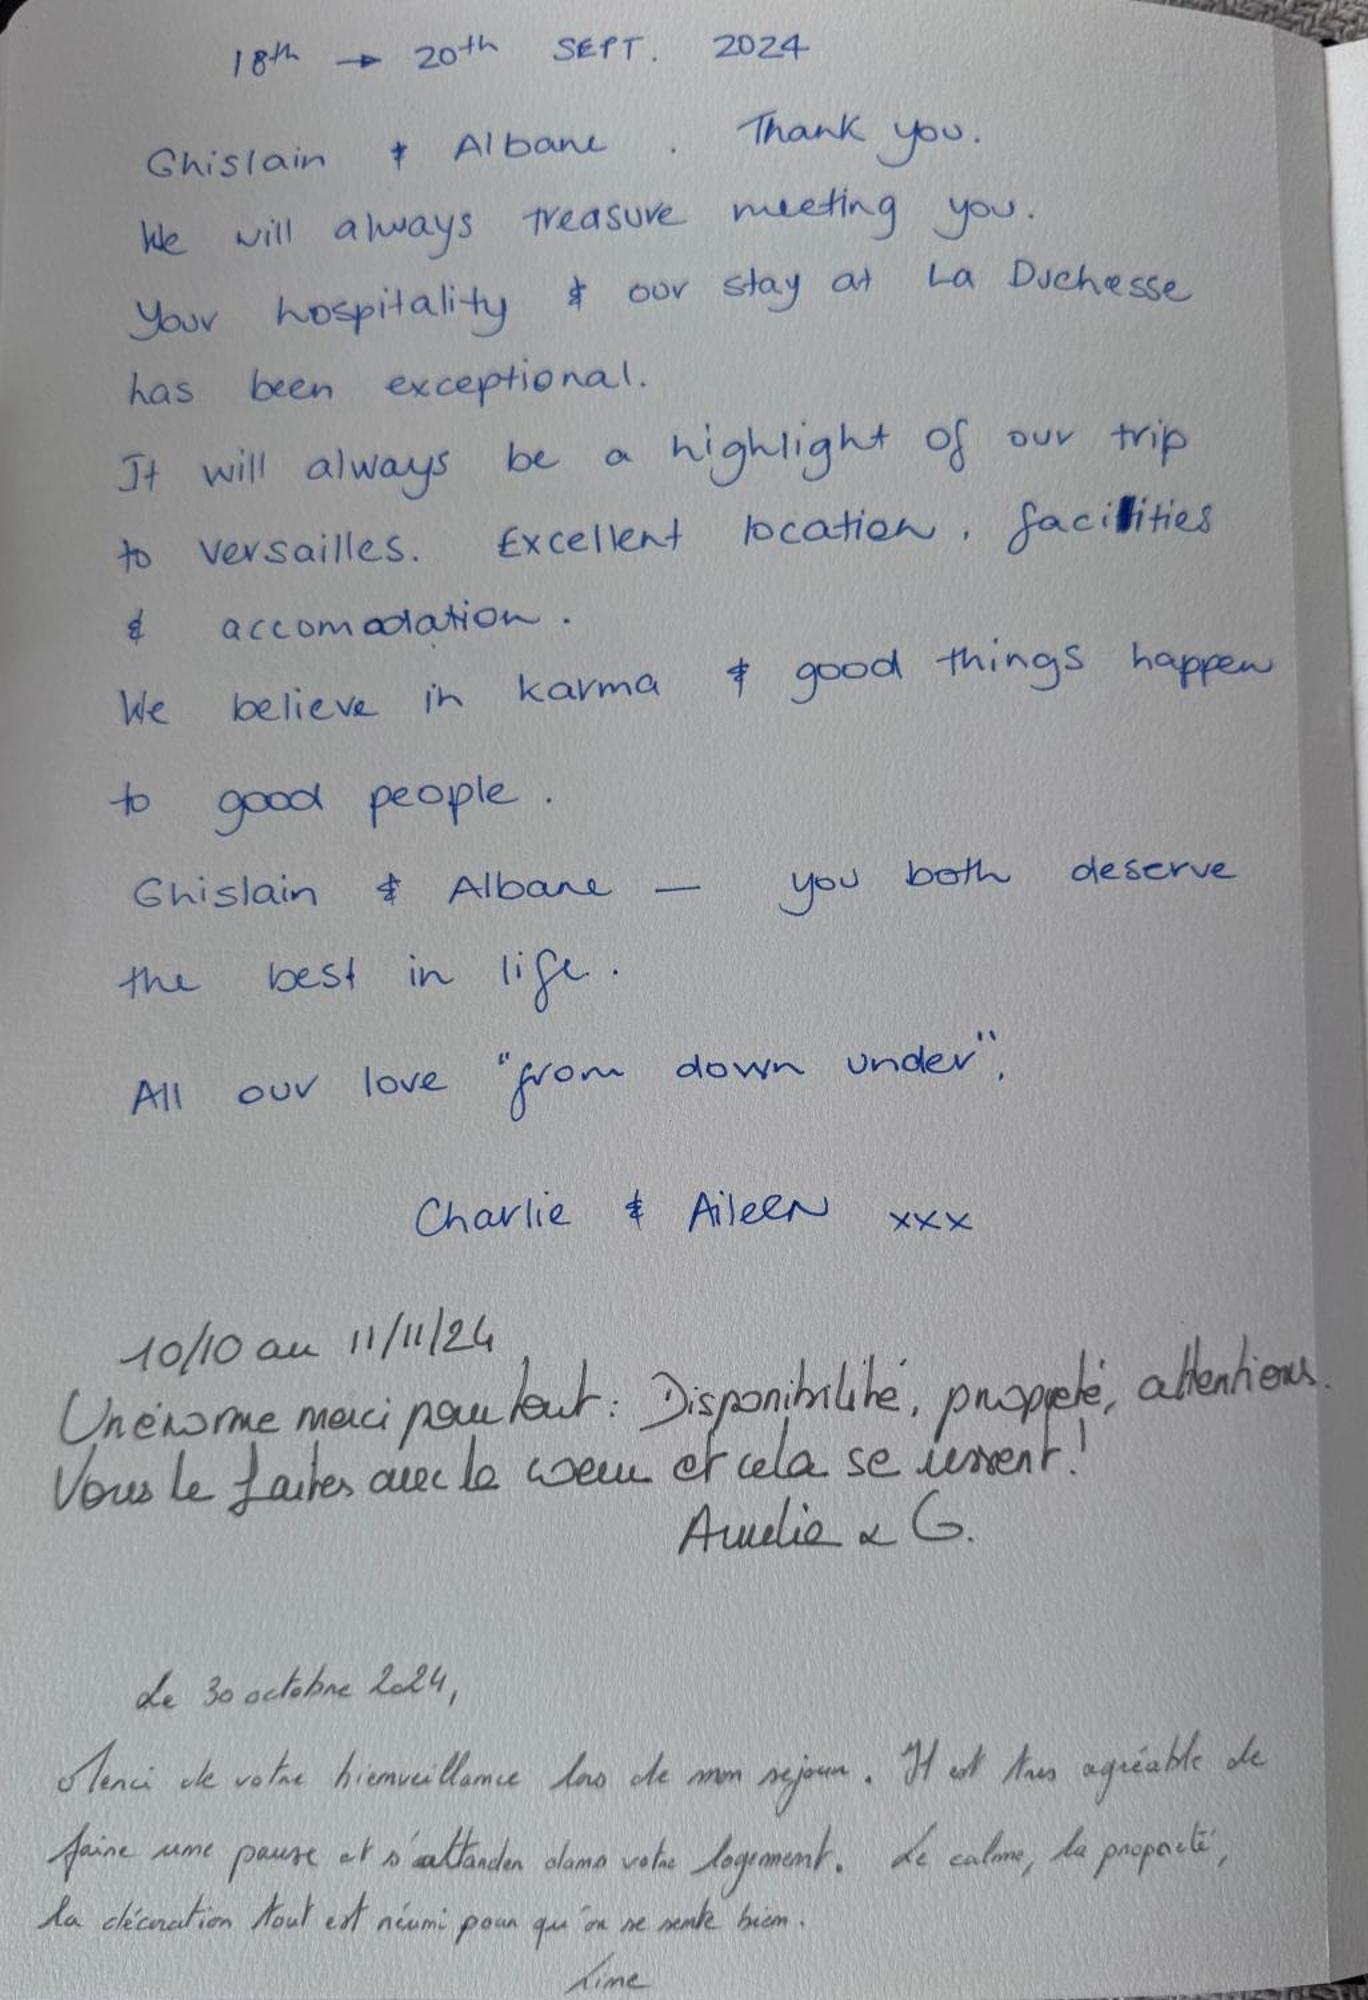 18th → 20th SEPT. 2024
Ghislain & Albane . Thank you.
We will always treasure meeting you.
Your hospitality & our stay at La Duchesse
has been exceptional.
It will always be a highlight of our trip
to Versailles. Excellent location, facilities
& accomodation.
We believe in karma & good things happen
to good people.
Ghislain & Albane — you both deserve
the best in life.
All our love "from down under",
Charlie & Aileen xxx
10/10 au 11/11/24
Un énorme merci pour tout : Disponibilité, propreté, attentions.
Vous le faites avec le coeur et cela se ressent !
Aurelie & G.
Le 30 octobre 2024,
Merci de votre bienveillance lors de mon sejour. Il est tres agréable de
faire une pause et s'attarder dans votre logement. Le calme, la propreté,
la décoration tout est réuni pour qu'on se sente bien.